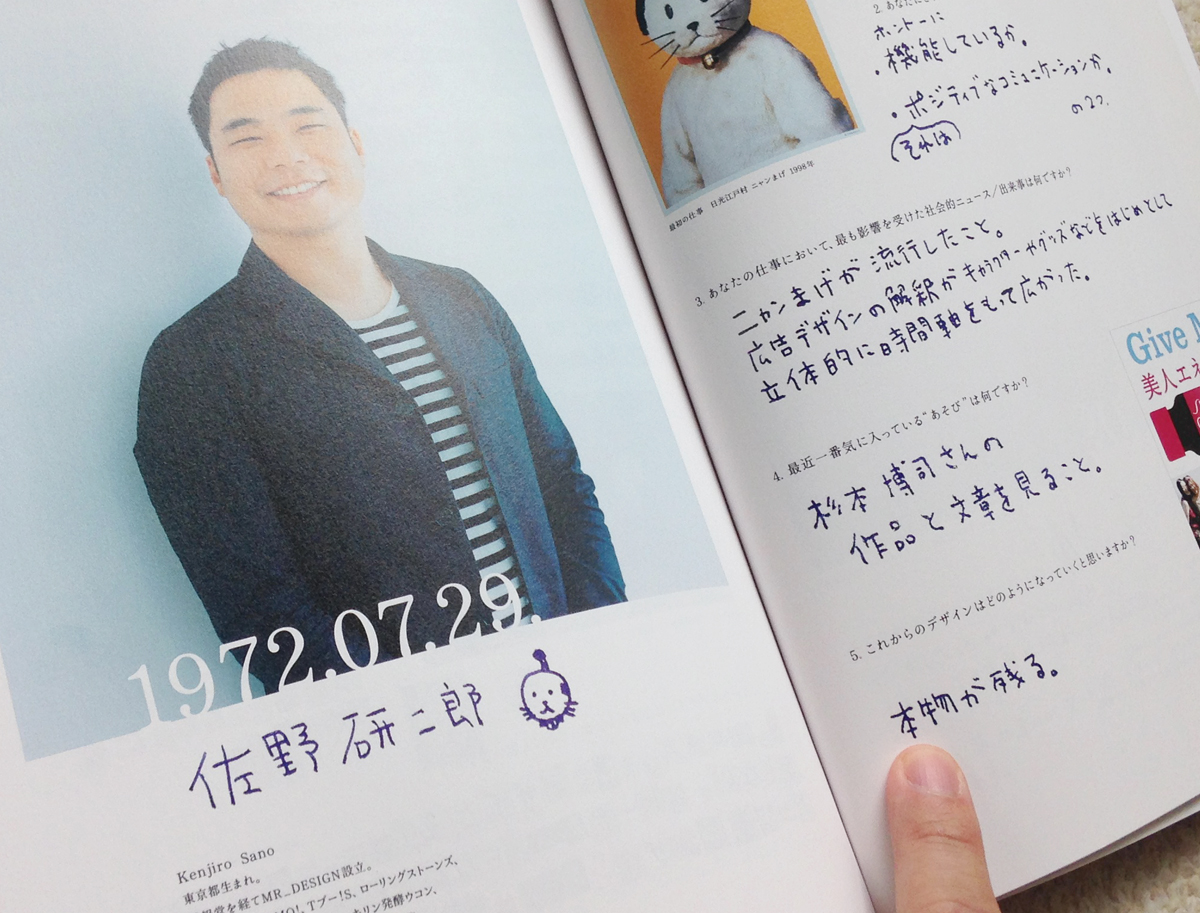 1972.07.29.
佐野 研二郎
Kenjiro Sano
東京都生まれ。
堂を経てMR_DESIGN設立。
MO!、Tブー!S、ローリングストーンズ、
キリン発酵ウコン、
2. あなたに
ホントーに
・機能しているか。
・ポジティブなコミュニケーションか。
(それは)
の2つ。
最初の仕事 日光江戸村 ニャンまげ 1998年
3. あなたの仕事において、最も影響を受けた社会的ニュース/出来事は何ですか?
ニャンまげが 流行したこと。
広告デザインの解釈がキャラクターやグッズなどをはじめとして
立体的に時間軸をもって広がった。
4. 最近一番気に入っている“あそび”は何ですか?
杉本 博司さんの
作品と文章を見ること。
5. これからのデザインはどのようになっていくと思いますか?
本物が残る。
Give
美人エネ